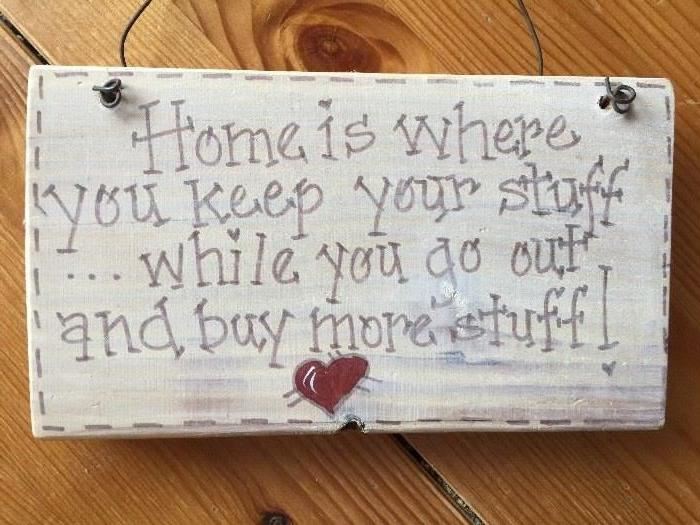 Home is where
you keep your stuff
... while you go out
and buy more stuff!